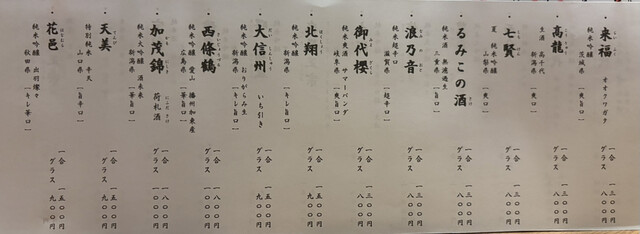 来福 オオワワガタ
純米吟醸
茨城県 [爽口]
一合 一三〇〇円
グラス 八〇〇円
高龍
生酒 高千代
新潟県 [爽口]
一合 一三〇〇円
グラス 八〇〇円
七賢
夏 純米吟醸
山梨県 [爽口]
一合 一三〇〇円
グラス 八〇〇円
るみこの酒
純米酒 無濾過生
三重県 [旨口]
一合 一三〇〇円
グラス 八〇〇円
浪乃音
純米超辛口
滋賀県 [超辛口]
一合 一三〇〇円
グラス 八〇〇円
御代櫻
純米爽酒 サマーバンダ
岐阜県 [爽旨口]
一合 一三〇〇円
グラス 八〇〇円
北翔
純米大吟醸
新潟県 [キレ旨口]
一合 一五〇〇円
グラス 九〇〇円
大信州 いち引き
純米吟醸 おりがらみ生
新潟県 [キレ旨口]
一合 一五〇〇円
グラス 九〇〇円
西條鶴
純米吟醸 愛山 播州加東産
広島県 [華旨口]
一合 一八〇〇円
グラス 一〇〇〇円
加茂錦 荷札酒
純米大吟醸 酒未来
新潟県 [華旨口]
一合 一八〇〇円
グラス 一〇〇〇円
天美
特別純米 辛天
山口県 [旨辛口]
一合 一五〇〇円
グラス 九〇〇円
花邑
純米吟醸 出羽燦々
秋田県 [キレ華口]
一合 一五〇〇円
グラス 九〇〇円